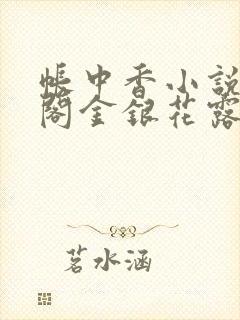 帳中香小說
閣金銀花露
茗水涵